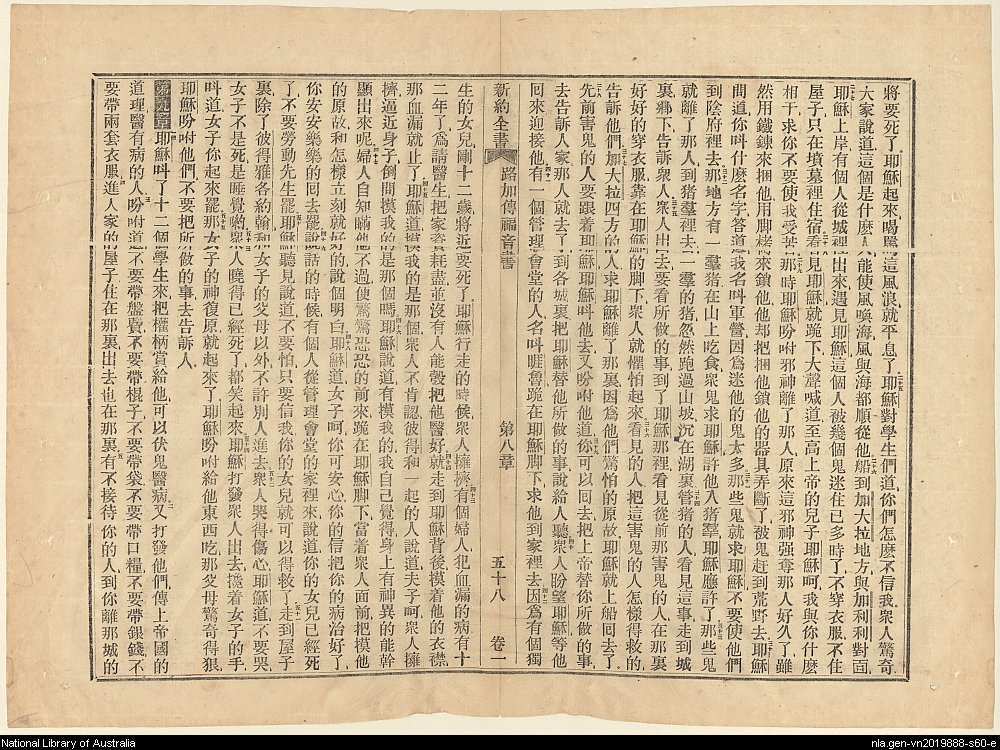 將要死了耶穌起來喝罵這風浪就平息了耶穌對學生們道你們怎麽不信我衆人驚奇
大家說道這個是什麽人能使風喚海風與海都順從他船到加大拉地方與加利利對面
耶穌上岸有個人從城裡出來遇見耶穌這個人被幾個鬼迷住已多時了不穿衣服不住
屋子只在墳墓裡住宿看見耶穌就跪下大聲喊道至高上帝的兒子耶穌呵我與你什麽
相干求你不要使我受苦那時耶穌吩咐邪神離了那人原來這邪神强奪那人好久了雖
然用鐵鍊來捆他用脚來鎖他他却把捆他鎖他的器具弄斷了被鬼赶到荒野去耶穌
問道你叫什麽名字答道我名叫軍營因爲迷他的鬼太多那些鬼就求耶穌不要使他們
到陰府裡去那地方有一羣猪在山上吃食衆鬼求耶穌許他入猪羣耶穌應許了那些鬼
就離了那人到猪羣裡去一羣的猪忽然跑過山坡沉在湖裏管猪的人看見這事走到城
裏鄉下告訴衆人衆人出去要看所做的事到了耶穌那裡看見從前那害鬼的人在那裏
好好的穿衣服靠在耶穌的脚下衆人就懼怕起來看見的人把這害鬼的人怎樣得救的
告訴他們加大拉四方的人求耶穌離了那裏因爲他們驚怕的原故耶穌就上船回去了
先前害鬼的人要跟着耶穌耶穌叫他去又吩咐他道你可以回去把上帝替你所做的事
去告訴人家那人就去了到各城裏把耶穌替他所做的事說給人聽衆人盼望耶穌等他
回來迎接他有一個管理會堂的人名叫睚魯跪在耶穌脚下求他到家裡去因爲有個獨
新約全書 路加傳福音書 第八章 五十八 卷一
生的女兒剛十二歲將近要死了耶穌行走的時候衆人擁擠有個婦人犯血漏的病有十
二年了爲請醫生把家資耗盡並沒有人能彀把他醫好就走到耶穌背後摸着他的衣襟
那血漏就止了耶穌道摸我的是那個衆人不肯認彼得和一起的人說道夫子呵衆人擁
擠逼近身子倒問摸我的是那個嗎耶穌說道有摸我的我自己覺得身上有神異的能幹
顯出來呢婦人自知瞞他不過便驚驚恐恐的前來跪在耶穌脚下當着衆人面前把摸他
的原故和怎樣立刻就好的說個明白耶穌道女子呵你可安心你的信把你的病治好了
你安安樂樂的回去罷說話的時候有個人從管理會堂的家裡來說道你的女兒已經死
了不要勞動先生罷耶穌聽見說道不要怕只要信我你的女兒就可以得救了走到屋子
裏除了彼得雅各約翰和女子的父母以外不許別人進去衆人哭得傷心耶穌道不要哭
女子不是死是睡覺喲衆人曉得已經死了都笑起來耶穌打發衆人出去攙着女子的手
叫道女子你起來罷那女子的神復原就起來了耶穌吩咐給他東西吃那父母驚奇得狠
耶穌吩咐他們不要把所做的事去告訴人
第九章耶穌叫了十二個學生來把權柄賞給他可以伏鬼醫病又打發他們傳上帝國的
道理醫有病的人吩咐道不要帶盤費不要帶棍子不要帶袋不要帶口糧不要帶銀錢不
要帶兩套衣服進人家的屋子住在那裏出去也在那裏有不接待你的人到你離那城的
National Library of Australia
nla.gen-vn2019888-s60-e